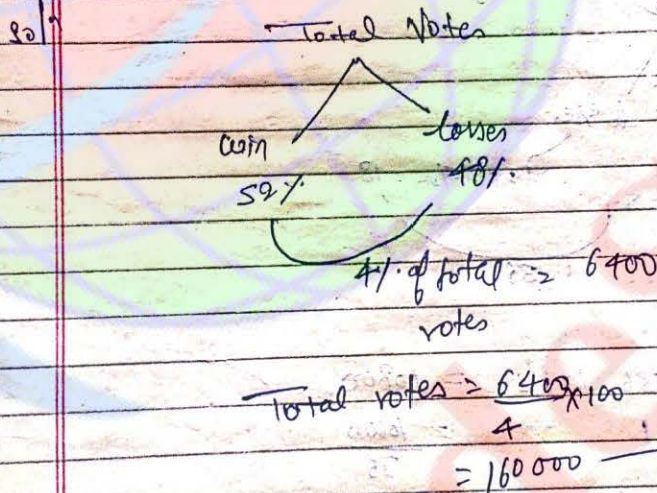 Sol^n
Total Votes
win losses
52% 48%
4% of total = 6400
votes
Total votes = 6400/4 × 100
= 160000